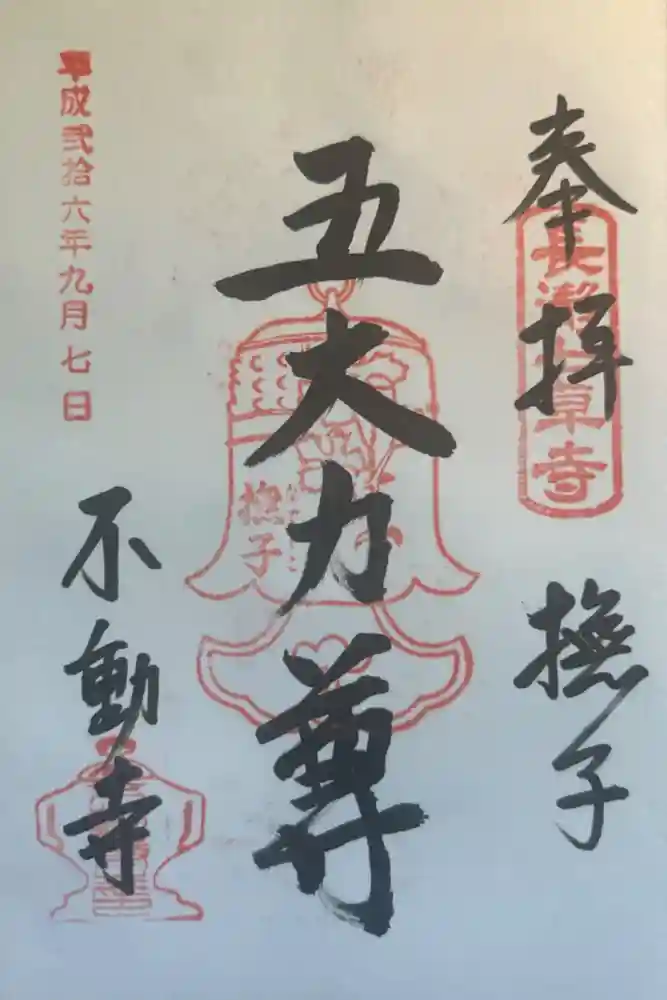 奉拝
長瀞七草寺
撫子
五大力尊
撫子
平成弐拾六年九月七日
不動寺